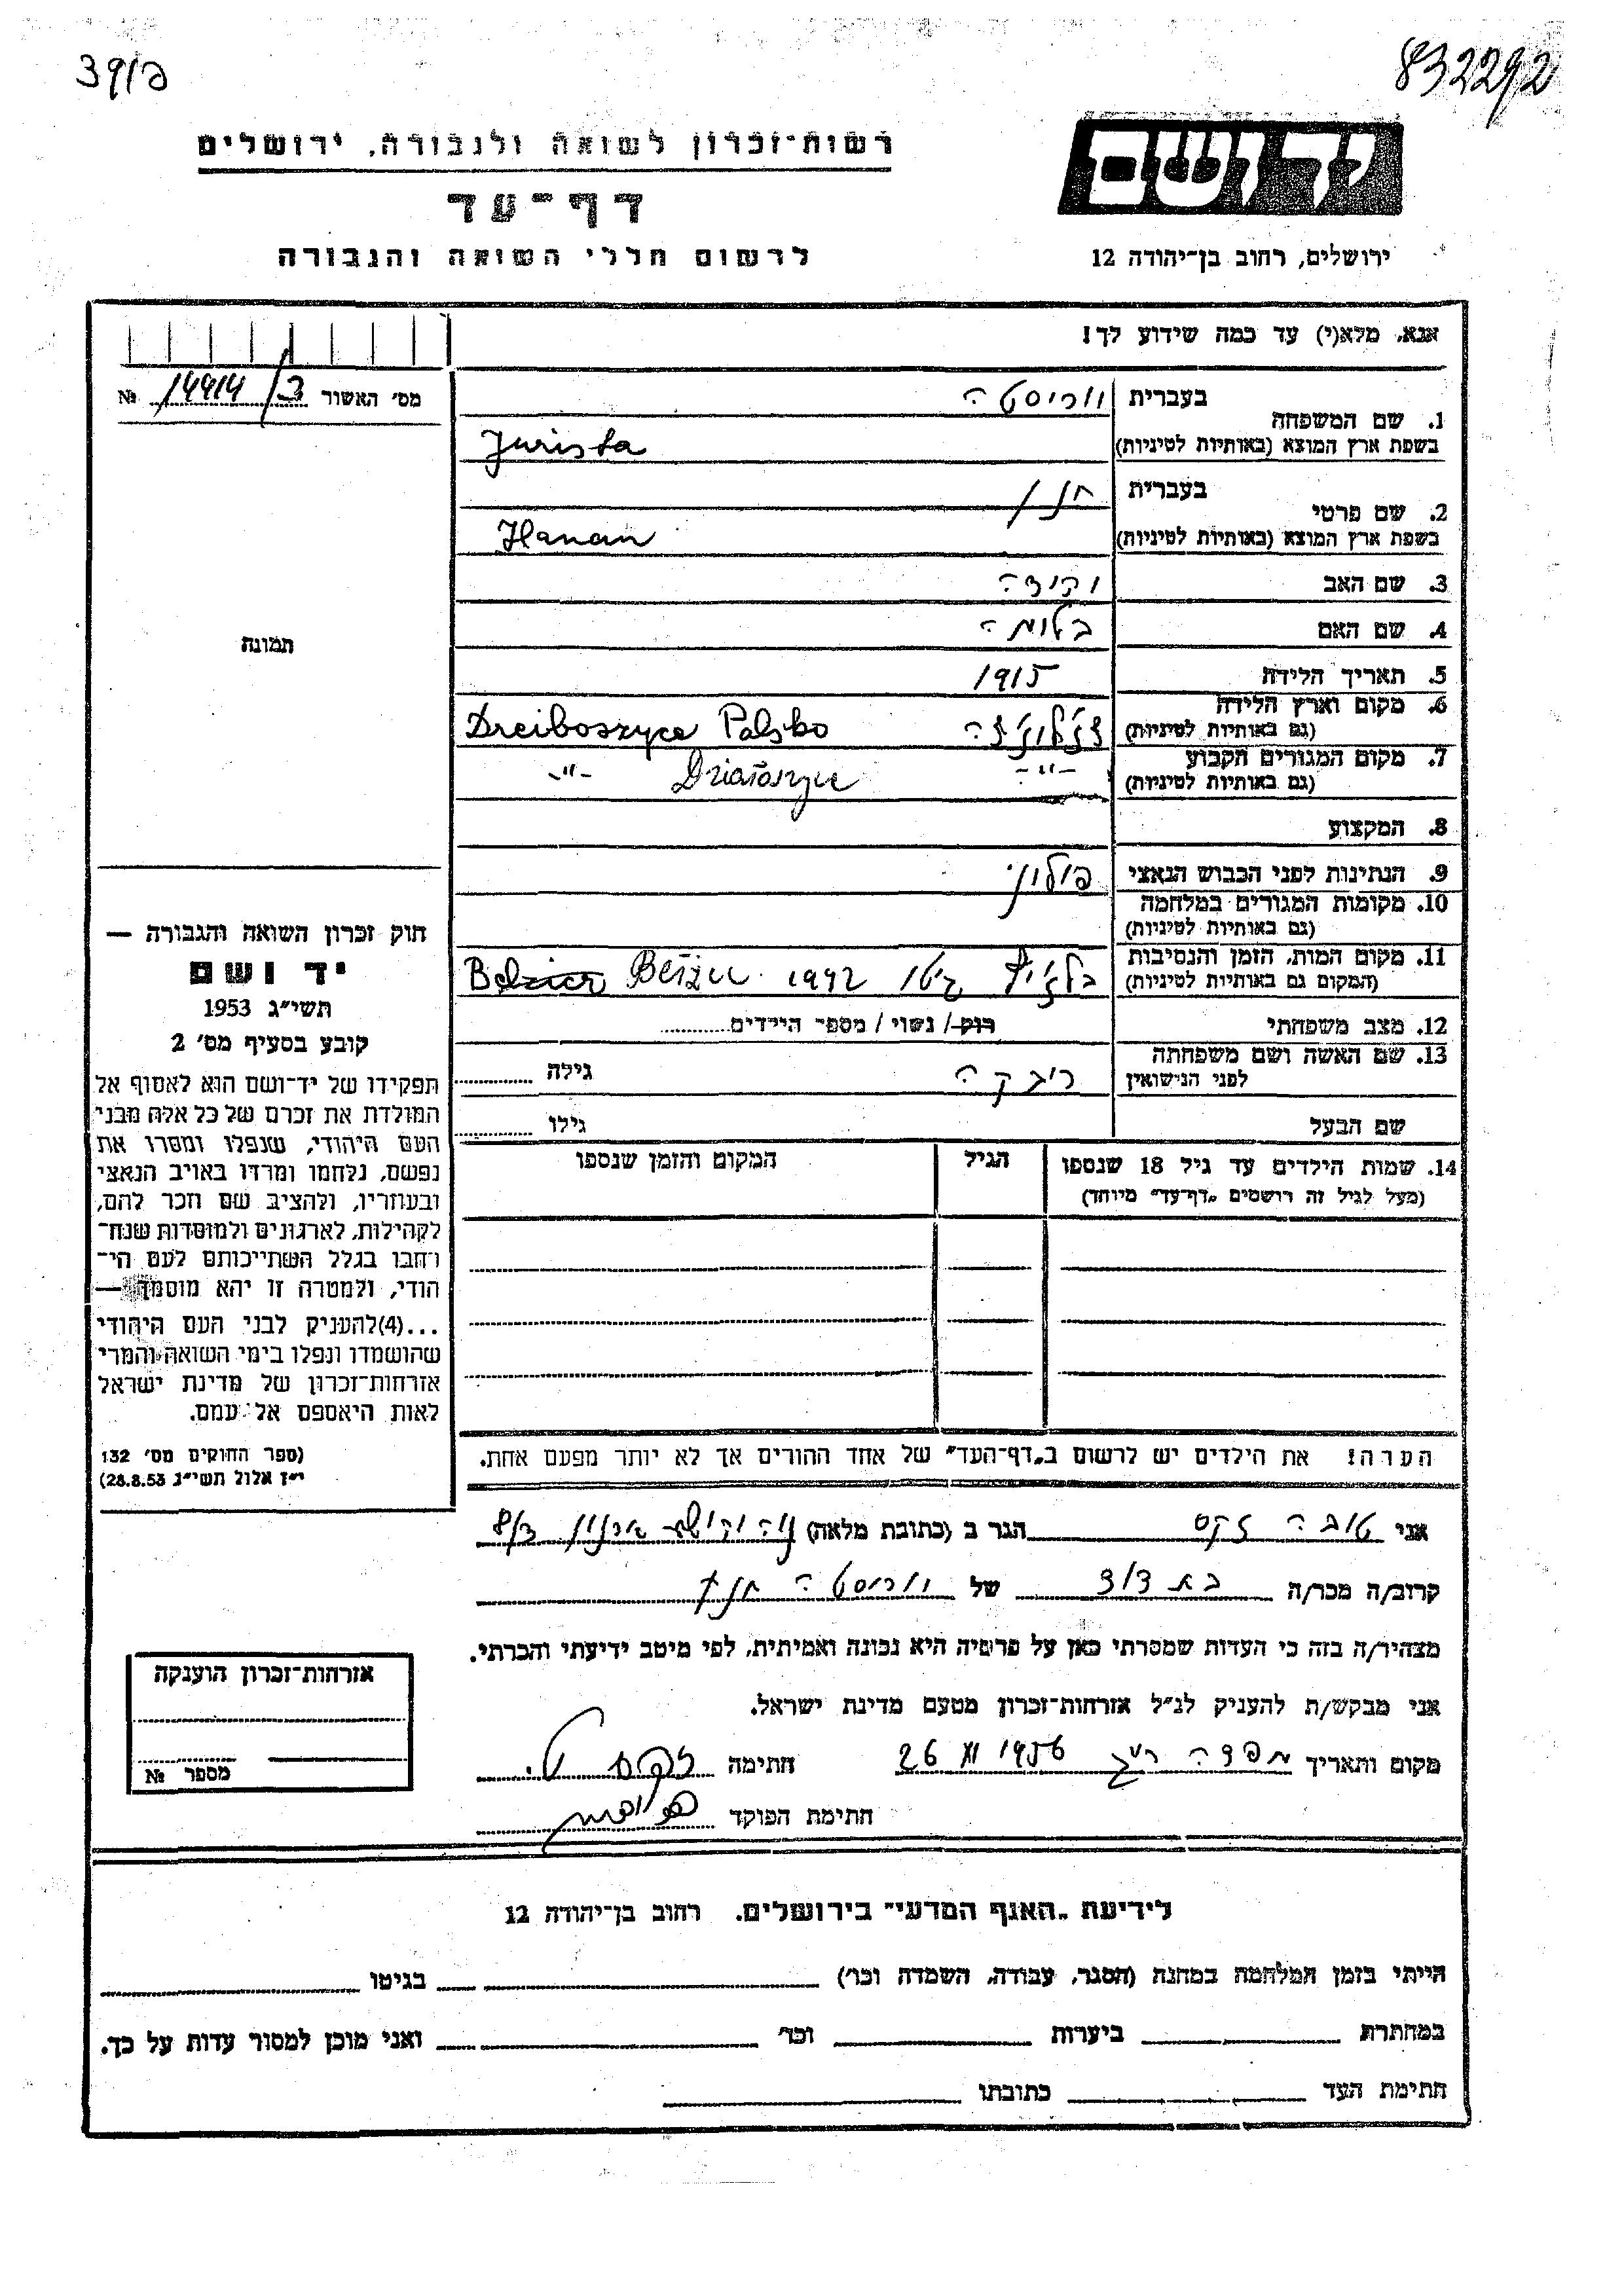 832292
רשות־זכרון לשואה ולגבורה, ירושלים
דף־עד
לרשום חללי השואה והגבורה
יד ושם
ירושלים, רחוב בן־יהודה 12
אנא, מלא(י) עד כמה שידוע לך!
מס' האשור 14414/ №
1. שם המשפחה
בעברית
בשפת ארץ המוצא (באותיות לטיניות) Jurista
2. שם פרטי
בעברית חנן
בשפת ארץ המוצא (באותיות לטיניות) Hanan
3. שם האב
4. שם האם
5. תאריך הלידה 1915
6. מקום וארץ הלידה
(גם באותיות לטיניות) Dreiboszyce Polsko
7. מקום המגורים הקבוע
(גם באותיות לטיניות) -"- Działoszyce -"-
8. המקצוע
9. הנתינות לפני הכבוש הנאצי פולני
10. מקומות המגורים במלחמה
(גם באותיות לטיניות)
11. מקום המות, הזמן והנסיבות
(המקום גם באותיות לטיניות) 1942
12. מצב משפחתי רוק / נשוי / מספר הילדים
13. שם האשה ושם משפחתה
לפני הנישואין רבקה גילה
שם הבעל גילו
14. שמות הילדים עד גיל 18 שנספו
(מעל לגיל זה רושמים „דף־עד" מיוחד)
הגיל
המקום והזמן שנספו
הערה! את הילדים יש לרשום ב„דף־העד" של אחד ההורים אך לא יותר מפעם אחת.
תמונה
חוק זכרון השואה והגבורה —
יד ושם
תשי"ג 1953
קובע בסעיף מס' 2
תפקידו של יד־ושם הוא לאסוף אל
המולדת את זכרם של כל אלה מבני
העם היהודי, שנפלו ומסרו את
נפשם, נלחמו ומרדו באויב הנאצי
ובעוזריו, ולהציב שם וזכר להם,
לקהילות, לארגונים ולמוסדות שנח־
רחבו בגלל השתייכותם לעם הי־
הודי, ולמטרה זו יהא מוסמך —
...(4)להעניק לבני העם היהודי
שהושמדו ונפלו בימי השואה והמרי
אזרחות־זכרון של מדינת ישראל
לאות היאספם אל עמם.
(ספר החוקים מס' 132
י"ז אלול תשי"ג 28.8.53)
אני טובה זקס הגר ב (כתובת מלאה)
קרוב/ה מכר/ה בת דוד של
מצהיר/ה בזה כי העדות שמסרתי כאן על פרטיה היא נכונה ואמיתית, לפי מיטב ידיעתי והכרתי.
אני מבקש/ת להעניק לנ"ל אזרחות־זכרון מטעם מדינת ישראל.
מקום ותאריך 26 XI 1956 חתימה זקס ט.
חתימת הפוקד
אזרחות־זכרון הוענקה
מספר №
לידיעת „האגף המדעי" בירושלים, רחוב בן־יהודה 12
הייתי בזמן המלחמה במחנה (הסגר, עבודה, השמדה וכו') בגיטו
במחתרת ביערות וכו' ואני מוכן למסור עדות על כך.
חתימת העד כתובתו